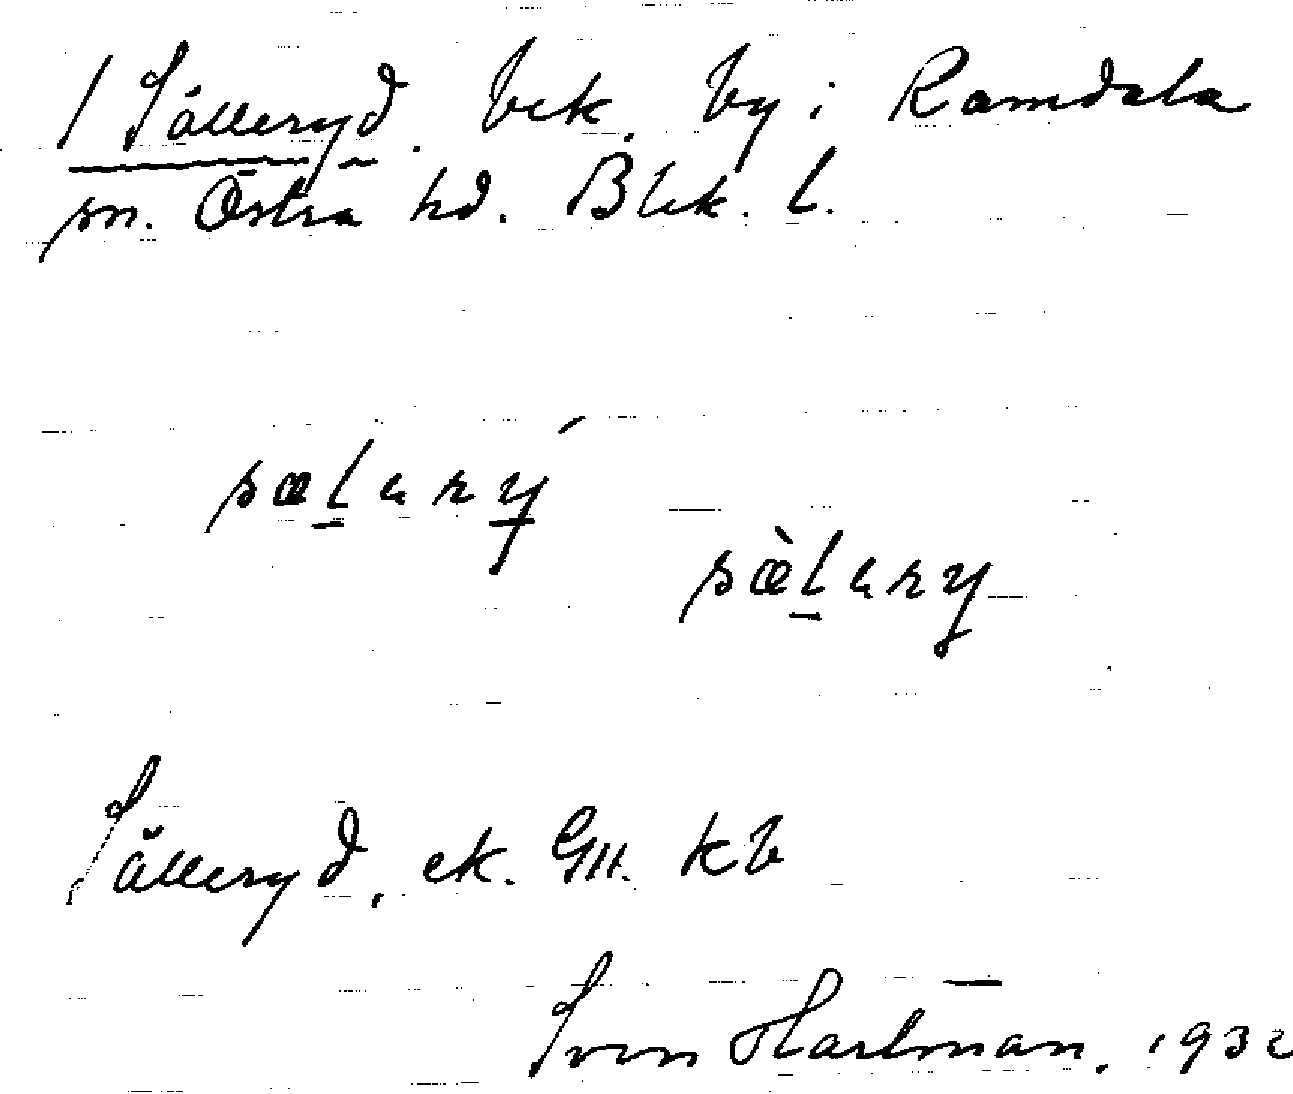 / Sålleryd. bek. by i Ramdala
sn. Östra hd. Blek. l.
sælarý
sæ̀lary
Sålleryd, ek. GII. kb
Sven Hartman. 1932